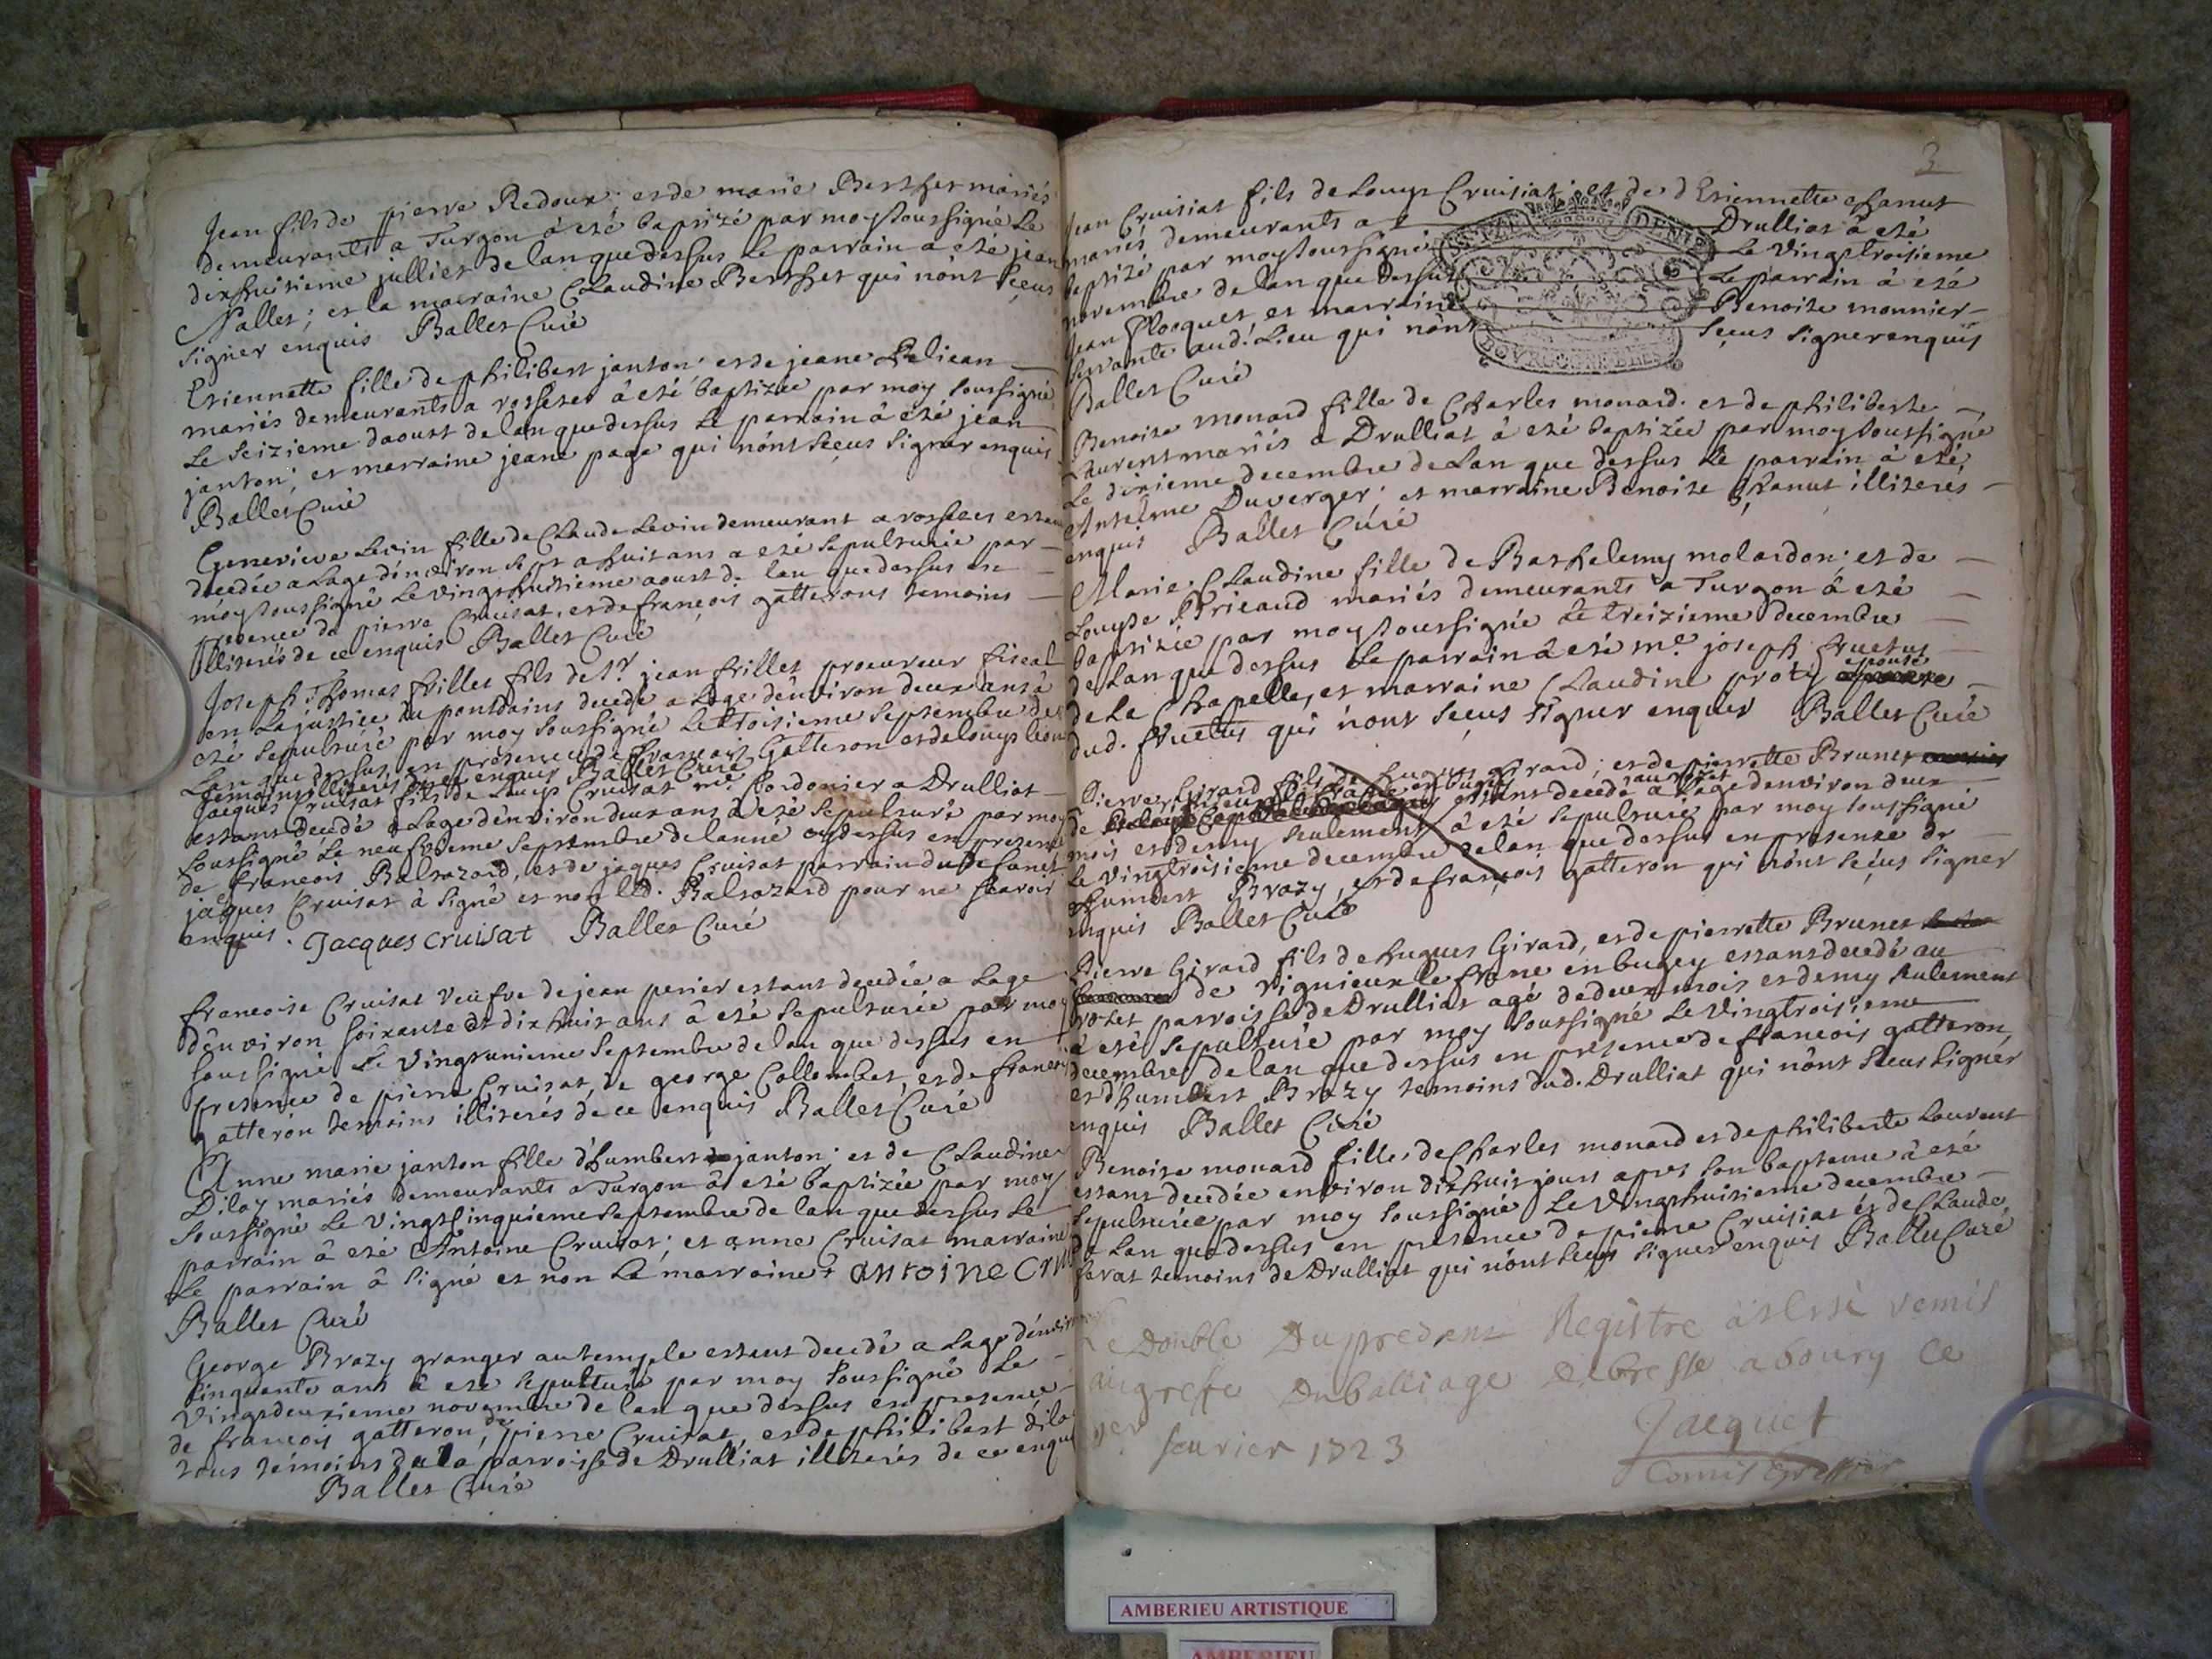 Jean fils de pierre Redoux; et de marie Berthet mariés
demeurants a Turgon â eté baptizé par moy soussigné Le
dixhuitieme jullliet de lan que dessus Le parrain a eté jean
Nallet; et la marraine Claudine Berthet qui nônt sçeus
signer enquis Ballet Curé
Etiennette fille de philibert janton et de jeane Pelican
mariés demeurants a rosseret â eté baptizée par moy soussigné
Le seizieme daoust de lan que dessus Le parrain â eté jean
janton, et marraine jeane page qui nônt sçeus signer enquis
Ballet Curé
Genevieve Levin fille de Claude Levin demeurant a rosseres estant
decedée a Lage dénviron sept a huit ans a eté sepulturée par
moy soussigné Le vingthuitieme aoust de lan que dessus en
presence de pierre Cruisat, et de françois gatterons temoins
illiterés de ce enquis Ballet Curé
Joseph Thomas frillet fils de Sr. jean frillet procureur fiscal
en La justice du pontdains decedé a Lage dénviron deux ans â
eté sepulturé par moy soussigné Le troisieme septembre de
Lan que dessus en presence de françois Gatteron et de louys
temoins illiterés enquis Ballet Curé
Jaques Cruisat fils de Louys Cruisat me. Cordonier a Drulliat
estant decedé a Lage dénviron deux ans â eté sepulturé par moy
soussigné Le neufvieme septembre de lanné cydessus en presence
de françois Baltazard, et de jaques Cruisat parrain du defunct
jaques Cruisat â signé et non led. Baltazard pour ne sçavoir
enquis. Jacques cruisat Ballet Curé
francoise Cruisat veufve de jean perier estant decedée a Lage
dénviron soixante et dixhuit ans â eté sepulturée par moy
soussigné Le vingtunieme septembre de lan que dessus en
presence de pierre Cruisat, de george Collombet, et de françois
gatteron temoins illiterés de ce enquis Ballet Curé
Anne marie janton fille dhumbert janton; et de Claudine
Diloy mariés demeurants a Turgon â eté baptizée par moy
soussigné Le vingtcinquieme septembre de lan que dessus Le
parrain â eté Antoine Cruisat; et anne Cruisat marraine
Le parrain â signé et non La marraine antoine Cru
Ballet Curé
George Brazy granger au temple estant decedé a Lage dénviron
cinquante ans â eté sepulturé par moy soussigné Le
vingtdeuxieme novembre de lan que dessus en presence
de françois gatteron, de pierre Cruisat, et de philibert dilo
tous temoins de la parroisse de Drulliat illiterés de ce enquis
Ballet Curé
3
Jean Cruisiat fils de Louys Cruisiat; et de dEtiennette Chanut
mariés demeurants a Drulliat â eté
baptizé par moy soussigné Le vingttroisieme
novembre de lan que dessus Le parrain â eté
Jean et marraine Benoite monnier
servante aud. Lieu qui nônt sçeus signer enquis
Ballet Curé
Benoite monard fille de Charles monard et de philiberte
Laurent mariés a Drulliat â eté baptizée par moy soussigné
Le dixieme decembre de Lan que dessus Le parrain â eté
Antelme Duverger; et marraine Benoite Chanut illiterés
enquis Ballet Curé
Marie Claudine fille de Barthelemy molardon; et de
Louyse mariés demeurants a Turgon â eté
baptizée par moy soussigné Le treizieme decembre
de Lan que dessus Le parrain â eté me. joseph fructus
de La Chapelle, et marraine Claudine epouse
dud. fructus qui nônt sçeus signer enquis Ballet Curé
Pierre Girard fils de hugues girard; et de pierrette Brunet
de estant decedé a Lage denviron deux
mois et demy seulement â eté sepulturé par moy soussigné
Le vingtroisieme decembre de lan que dessus en presence de
humbert Brazy, et de françois gatteron qui nônt sçeus signer
enquis Ballet Curé
Pierre Girard fils de hugues Girard, et de pierrette Brunet
de vignieux le frane en bugey estant decedé au
rozet parroisse de Drulliat agé de deux mois et demy seulement
â eté sepulturé par moy soussigné Le vingtroisieme
decembre de lan que dessus en presence de francois gatteron,
et dhumbert Brazy temoins dud. Drulliat qui nônt sceus signer
enquis Ballet Curé
Benoite monard fille de Charles monard et de philiberte Laurent
estant decedée environ dixhuit jours apres son bapteme â eté
sepulturée par moy soussigné Le vingthuitieme decembre
de Lan que dessus en presence de pierre Cruisiat et de Claude
favat temoins de Drulliat qui nônt sceus signer enquis Ballet Curé
Le Double Dupredent Registre a estesi remis
augrefe Duballiage debresse abourg ce
1er fevrier 1723 Jacquet
Comis Greffier
AMBERIEU ARTISTIQUE
AMBERIEU